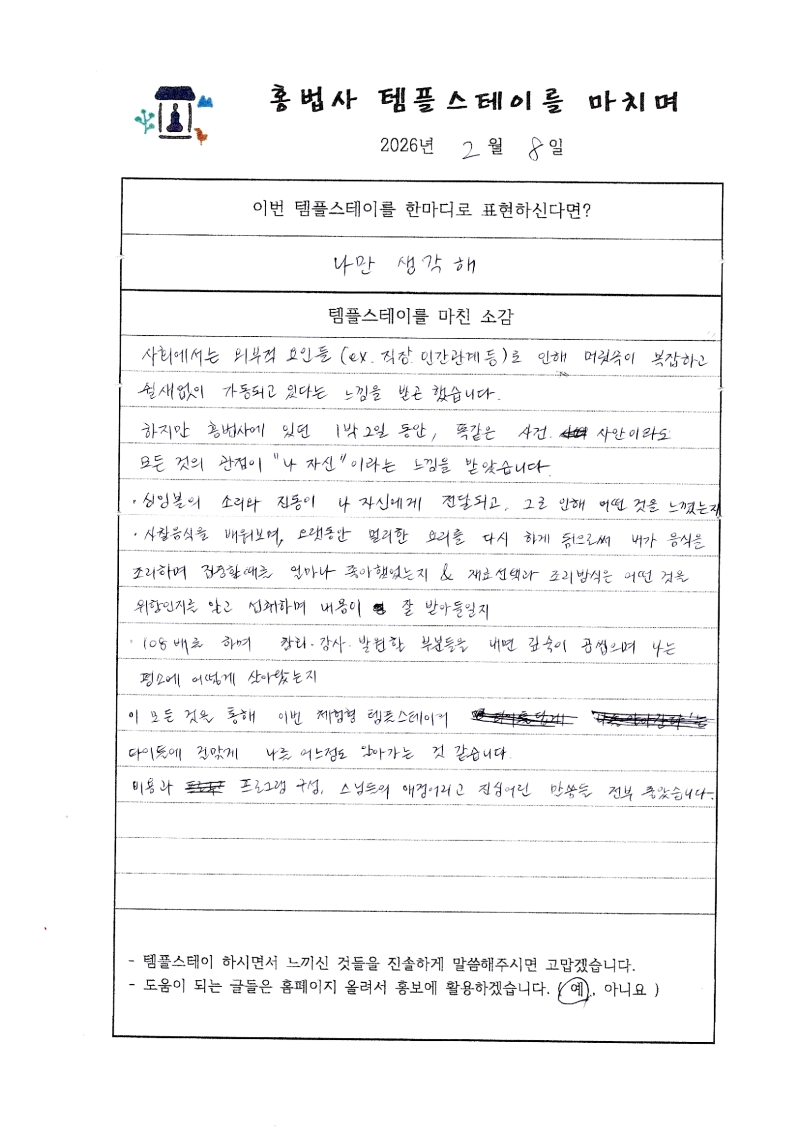 홍법사 템플스테이를 마치며
2026년 2월 8일
이번 템플스테이를 한마디로 표현하신다면?
나만 생각해
템플스테이를 마친 소감
사회에서는 외부적 요인들 (ex. 직장. 인간관계 등)로 인해 머릿속이 복잡하고
쉴새없이 가동되고 있다는 느낌을 받곤 했습니다.
하지만 홍법사에 있던 1박 2일 동안, 똑같은 사건. 사안이라도
모든 것의 관점이 "나 자신"이라는 느낌을 받았습니다.
· 싱잉볼의 소리와 진동이 나 자신에게 전달되고, 그로 인해 어떤 것을 느꼈는지
· 사찰음식을 배워보며, 오랫동안 멀리한 요리를 다시 하게 됨으로써 내가 음식을
조리하며 집중할때를 얼마나 좋아했었는지 & 재료선택과 조리방식은 어떤 것을
위함인지를 알고 섭취하며 내용이 잘 받아들일지
· 108배를 하며 참회·감사·발원한 부분들을 내면 깊숙이 곱씹으며 나는
평소에 어떻게 살아왔는지
이 모든 것을 통해 이번 체험형 템플스테이의
타이틀에 걸맞게 나를 어느정도 알아가는 것 같습니다.
비용과 프로그램 구성, 스님들의 애정어리고 진심어린 말씀들 전부 좋았습니다.
- 템플스테이 하시면서 느끼신 것들을 진솔하게 말씀해주시면 고맙겠습니다.
- 도움이 되는 글들은 홈페이지 올려서 홍보에 활용하겠습니다. ( 예 , 아니요 )